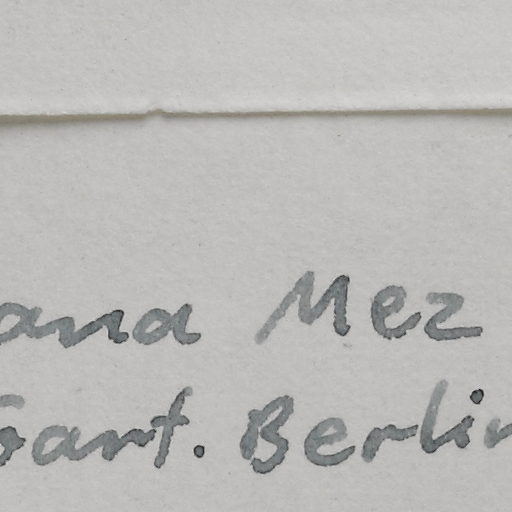 ana Mez
Gart. Berlin